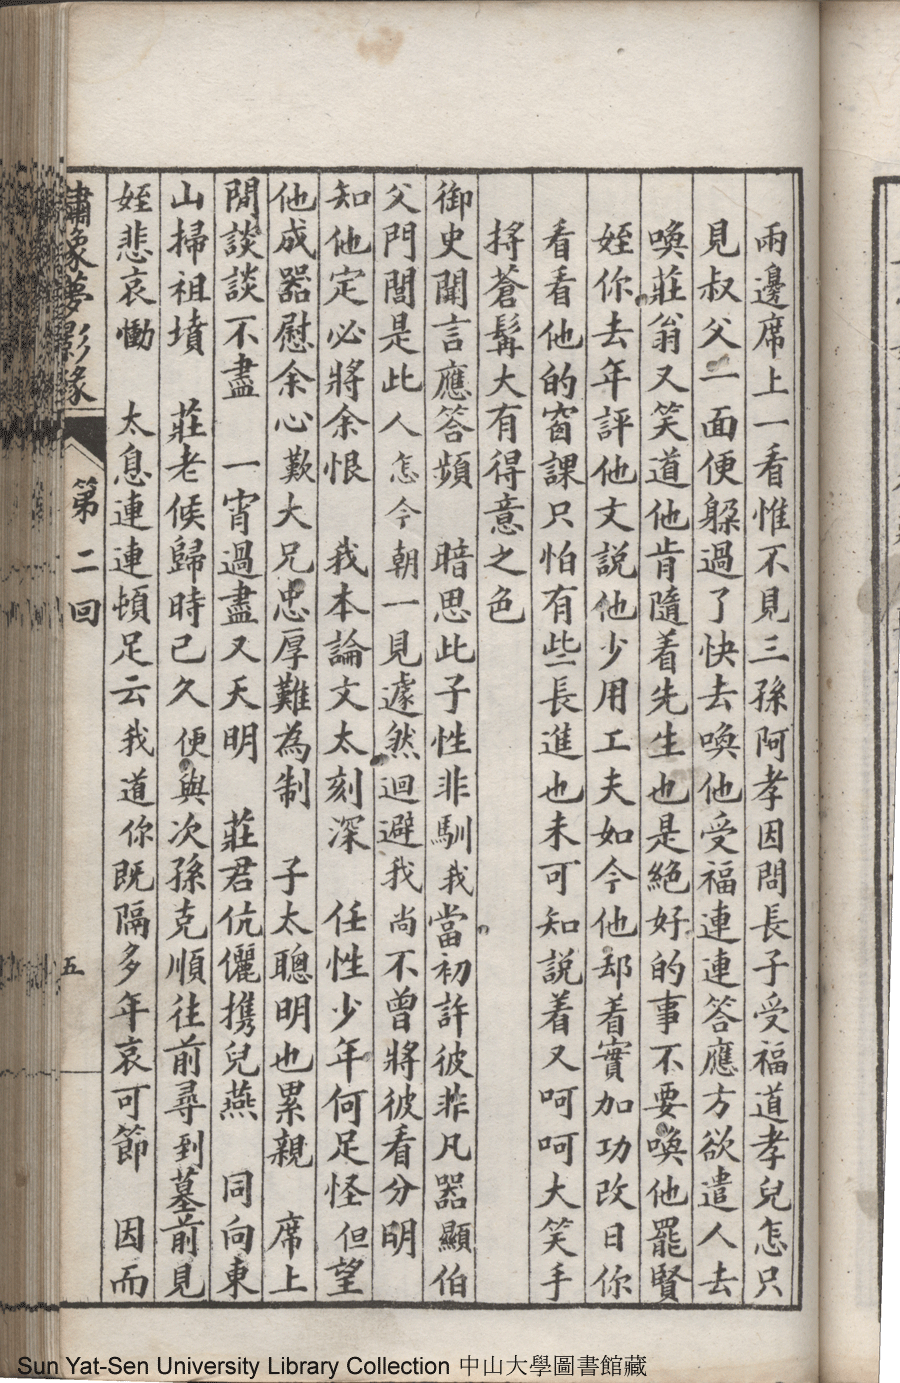 兩邊席上一看惟不見三孫阿孝因問長子受福道孝兒怎只
見叔父一面便躱過了快去喚他受福連連答應方欲遣人去
喚莊翁又笑道他肯隨着先生也是絕好的事不要喚他罷賢
姪你去年評他文說他少用工夫如今他却着實加功改日你
看看他的窗課只怕有些長進也未可知說着又呵呵大笑手
捋蒼髯大有得意之色
御史聞言應答頻　暗思此子性非馴我當初許彼非凡器顯伯
父門閭是此人怎今朝一見遽然迴避我尚不曾將彼看分明
知他定必將余恨　我本論文太刻深　任性少年何足怪但望
他成器慰余心歎大兄忠厚難為制　子太聰明也累親　席上
閒談談不盡　一宵過盡又天明　莊君伉儷携兒燕　同向東
山掃祖墳　莊老候歸時已久便與次孫克順往前尋到墓前見
姪悲哀慟　太息連連頓足云我道你既隔多年哀可節　因而
繡像夢影緣　第二回　五
Sun Yat-Sen University Library Collection 中山大學圖書館藏